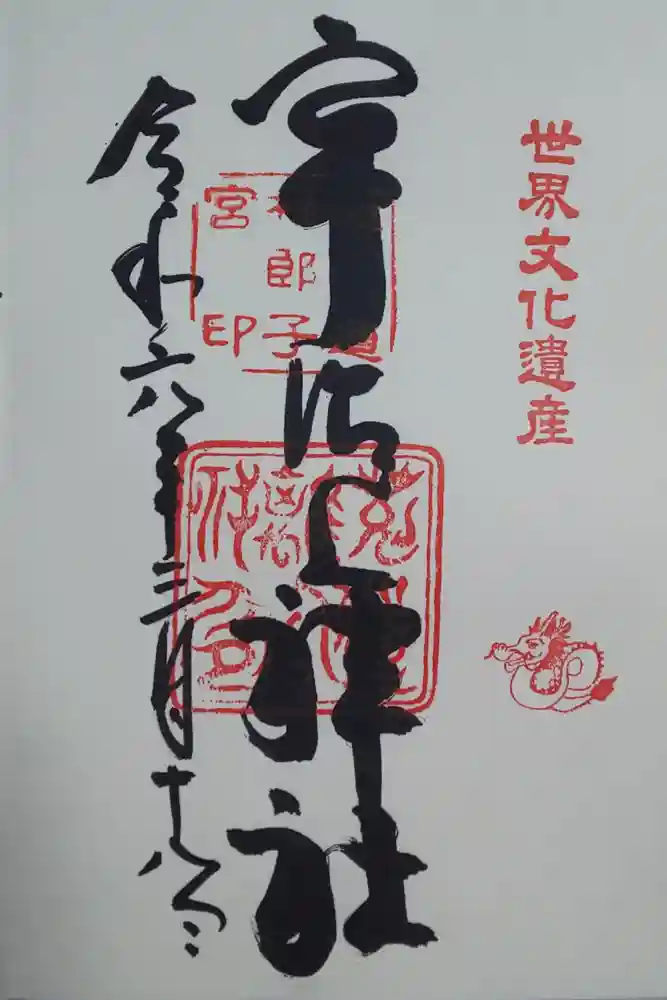 世界文化遺産
宇治上神社
令和六年三月十八日
郎子
宮印